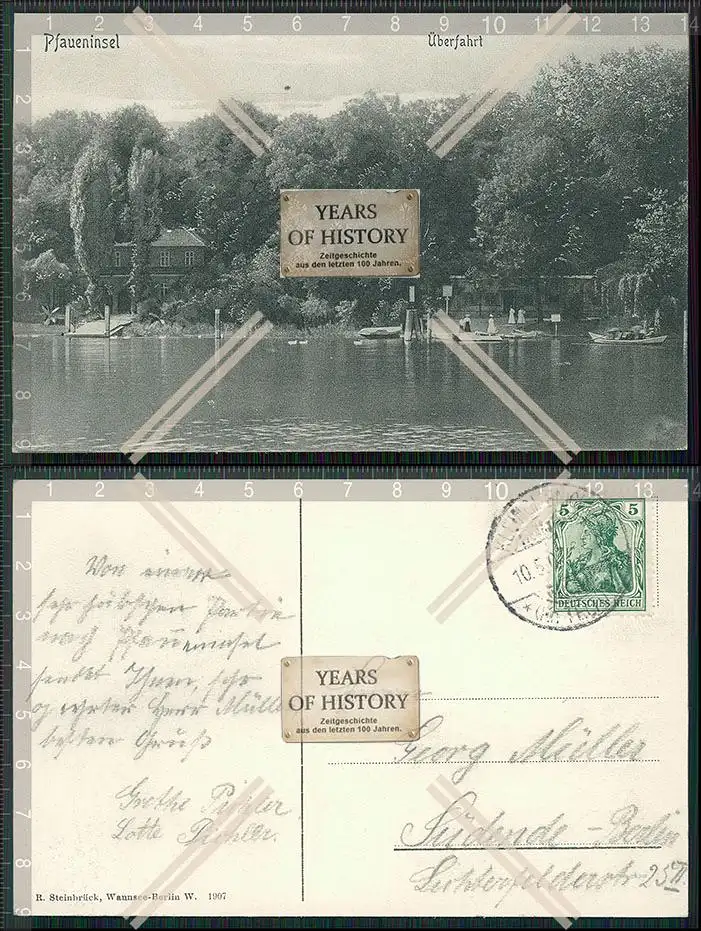 Pfaueninsel
Überfahrt
YEARS
OF HISTORY
Zeitgeschichte
aus den letzten 100 Jahren.
5 5
DEUTSCHES REICH
10.5.
Von einer
sehr hübschen Partie
nach Pfaueninsel
sendet Ihnen, sehr
geehrter Herr Müller
besten Gruß
Grethe Pichler
Lotte Pichler.
YEARS
OF HISTORY
Zeitgeschichte
aus den letzten 100 Jahren.
Georg Müller
Südende-Berlin
Lichterfelderstr 25 II
R. Steinbrück, Wannsee-Berlin W. 1907